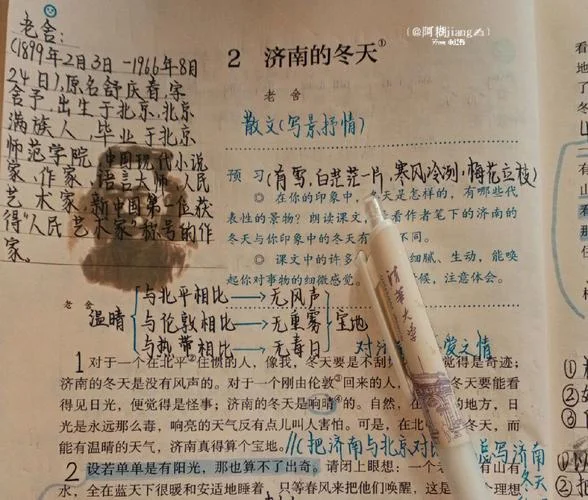 (@阿糊jiang✍)
From 小红书
老舍:
(1899年2月3日-1966年8月
24日),原名舒庆春,字
舍予,出生于北京,北京
满族人,毕业于北京
师范学院,中国现代小说
家,作家,语言大师,人民
艺术家,新中国第一位获
得"人民艺术家"称号的作
家。
2 济南的冬天①
老 舍
散文(写景抒情)
预 习(有雪,白茫茫一片,寒风冷冽,梅花立枝)
◎ 在你的印象中,冬天是怎样的,有哪些代
表性的景物?朗读课文,看作者笔下的济南的
冬天与你印象中的冬天有不同。
◎ 课文中的许多细腻、生动,能唤
起你对事物的细微感觉。候,注意体会。
老 舍
温晴
与北平相比→无风声
与伦敦相比→无重雾
与热带相比→无毒日
宝地
对济爱之情
1 对于一个在北平②住惯的人,像我,冬天要是不刮觉得是奇迹;
济南的冬天是没有风声的。对于一个刚由伦敦③回来的人,冬天要能看
得见日光,便觉得是怪事;济南的冬天是响晴④的。自然,在的地方,日
光是永远那么毒,响亮的天气反有点儿叫人害怕。可是,在北冬天,而
能有温晴的天气,济南真得算个宝地。//(把济南与北京对比总写济南
冬天
2 设若单单是有阳光,那也算不了出奇。请闭上眼想:一个老有山有
水,全在蓝天下很暖和安适地睡着,只等春风来把他们唤醒,这是理想
清华大学